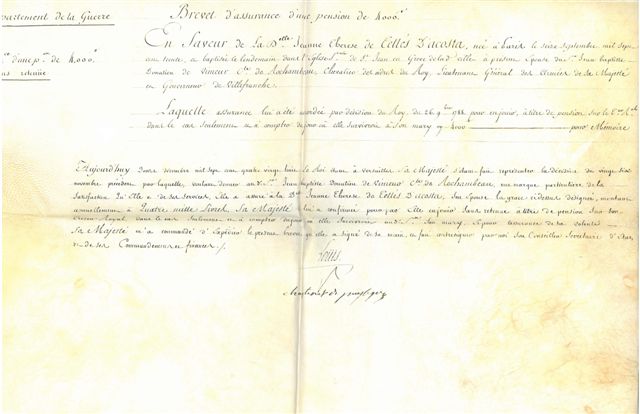 partement de la Guerre
Brevet d'assurance d'une pension de 4000.
d'une p.on de 4,000.
sans retenue
En Faveur de La D.elle Jeanne Therese de Tellés Dacosta, née à Paris le seize septembre mil sept
cent trente, a baptisé le lendemain dans l'Eglise de S.t Jean en Greve de lad. ville à present Epouse du S. Jean baptiste
Donation de Vimeur C.te de Rochambeau, Chevalier des ordres du Roy, Lieutenant Général des Armées de Sa Majesté
et Gouverneur de Villefranche.
Laquelle assurance lui a été accordée par décision du Roy du 26. 9.bre 1788 pour en jouir, à titre de pension sur le
dans le cas seulement et à compter du jour où elle survivroit à son mary cy 4000 pour Mémoire
Aujourd'huy Douze décembre mil sept cent quatre vingt huit le Roi étant à Versailles Sa Majesté s'étant fait représenter la décision du vingt six
novembre précédent par laquelle, voulant donner au S. Jean baptiste Donatien de Vimeur C.te de Rochambeau, une marque particulière de la
Satisfaction qu'Elle a de ses Services, Elle a assuré à la D.e Jeanne Therese de Telles Dacosta, son Epouse la grace cy dessus désignée, montant
annuellement à Quatre mille livres, Sa Majesté lui a confirmé pour par Elle en jouir sans retenue à titre de pension sur son
Trésor Royal dans le cas seulement et à compter du jour où elle survivroit aud. S. son mary. Et pour assurance de sa volonté
Sa Majesté m'a commandé d'Expédier le present brevet qu'elle a signé de sa main, et fait contresigner par moi son Conseiller Secretaire d'Etat
et de ses Commandemens et finances.
Louis